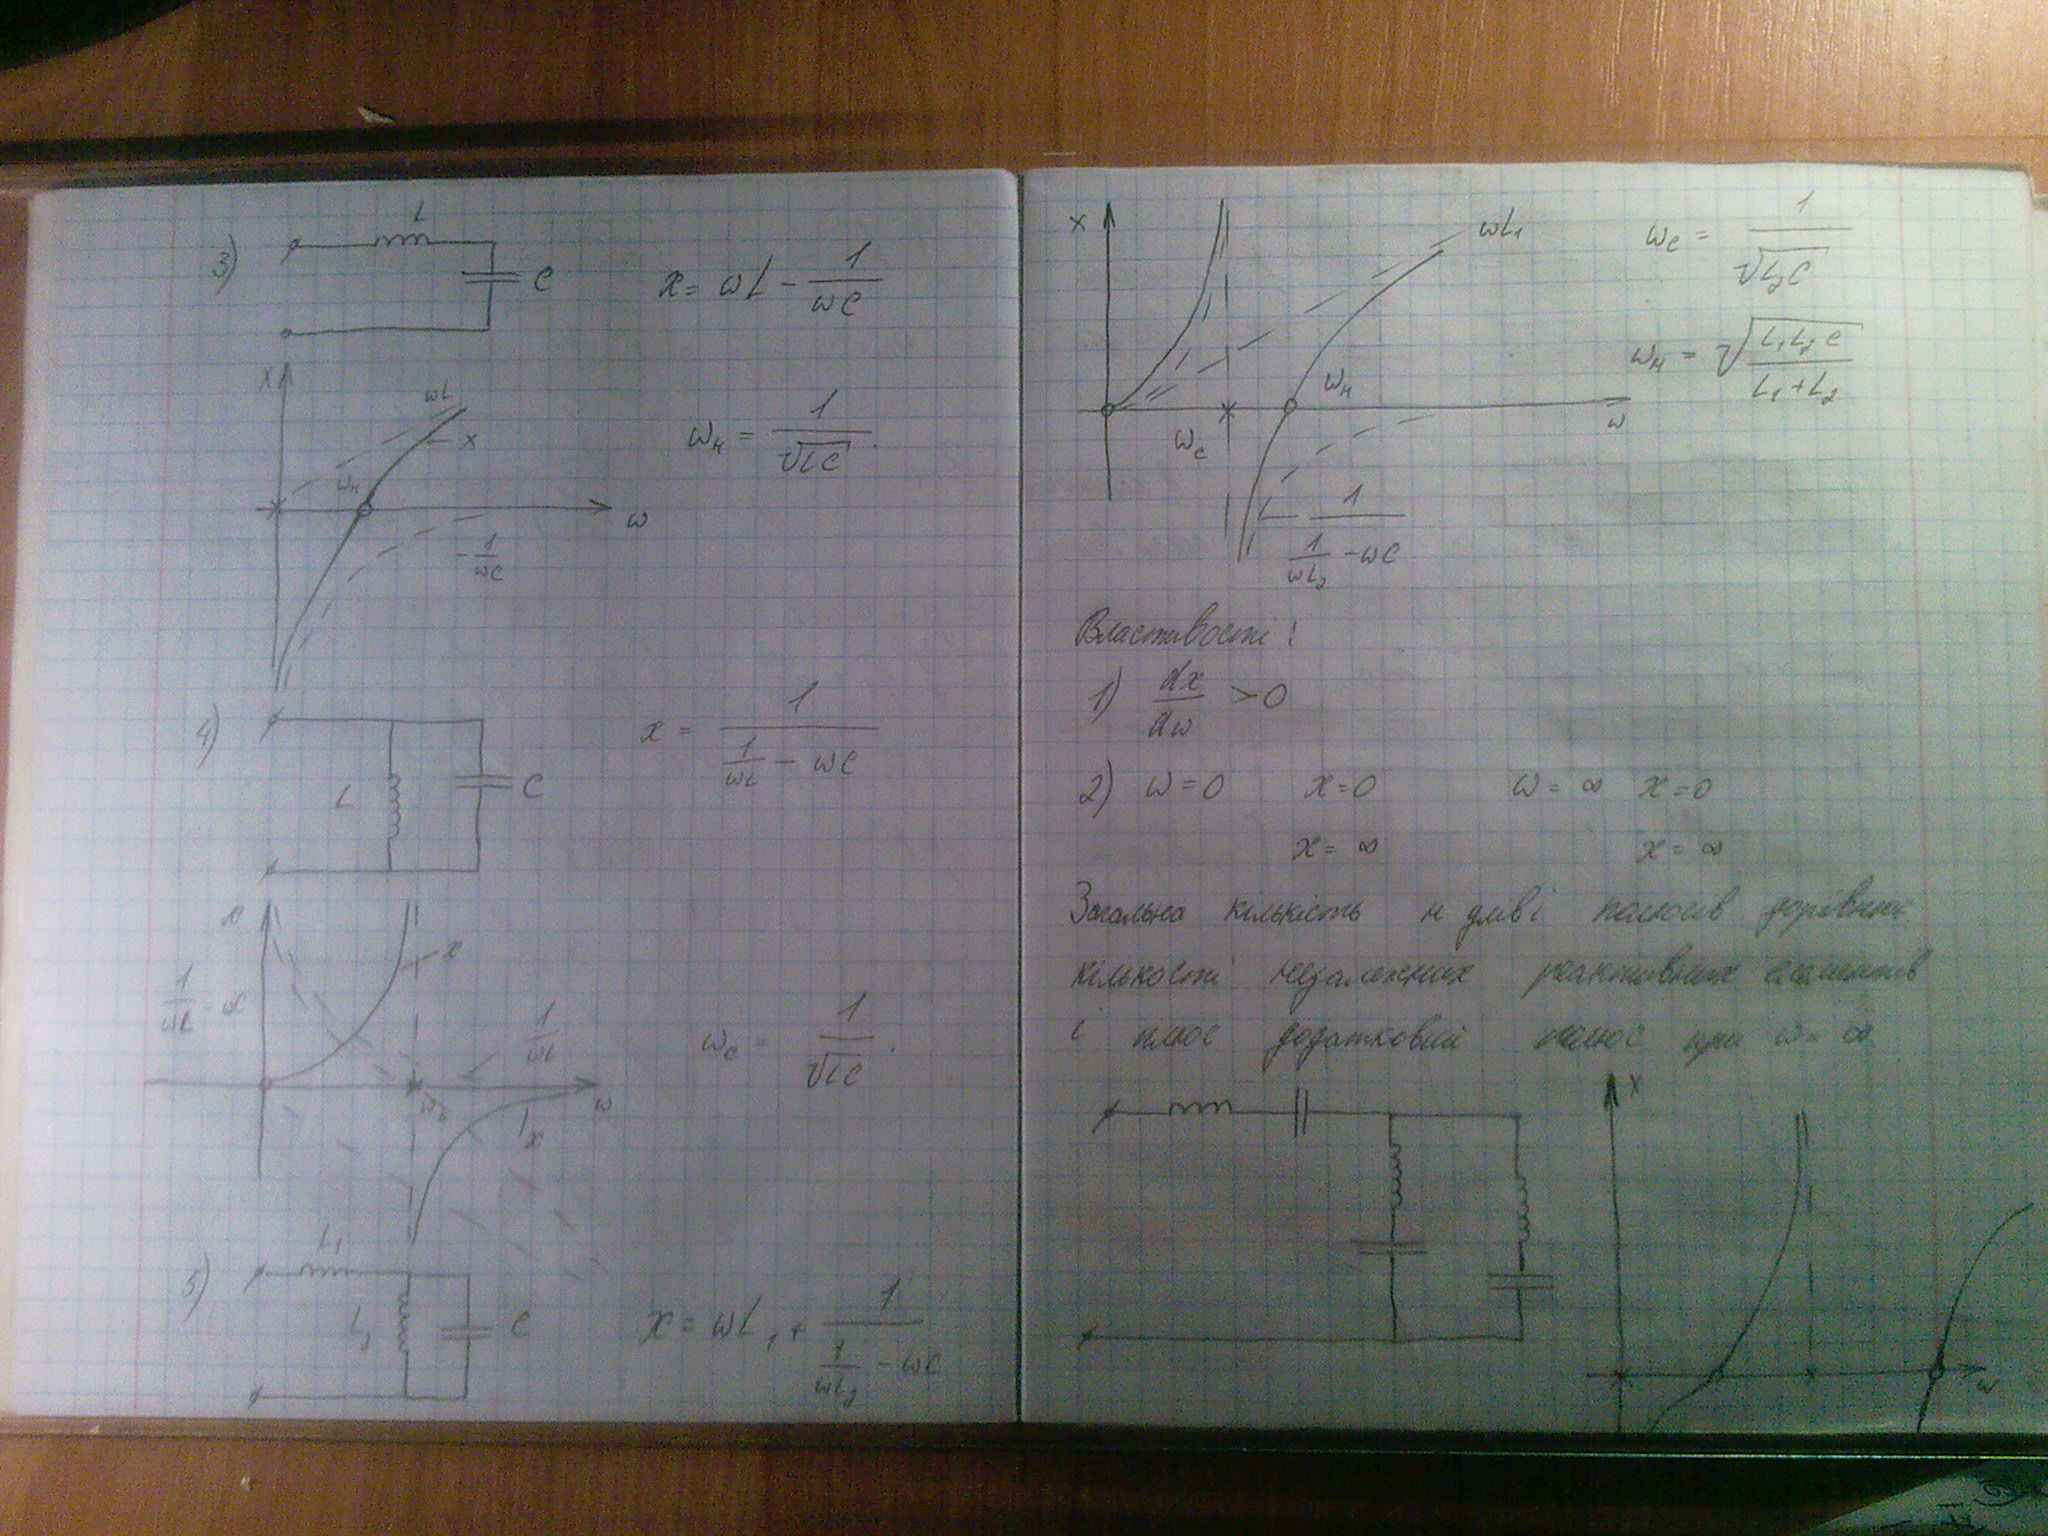 3)
L
C
x = ωL - 1/ωC
x
ωL
x
ωн
ω
-1/ωC
ωн = 1/√LC.
4)
L
C
x = 1/(1/ωL - ωC)
x
x
1/ωL
ω
x
ωс = 1/√LC.
5)
L₁
L₂
C
x = ωL₁ + 1/(1/ωL₂ - ωC)
x
ωL₁
ωс = 1/√L₂C
ωн = √(L₁L₂C/(L₁+L₂))
ωн
ωс
ω
1/(1/ωL₂ - ωC)
Властивості:
1) dx/dω > 0
2) ω=0 x=0 ω=∞ x=0
x=∞ x=∞
Загальна кількість полюсів дорівнює
кількості незалежних реактивних елементів
і плюс додатковий полюс при ω=∞
x
ω